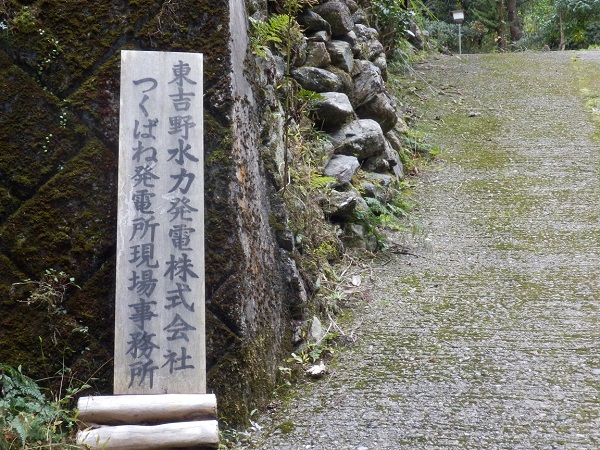 東吉野水力発電株式会社
つくばね発電所現場事務所